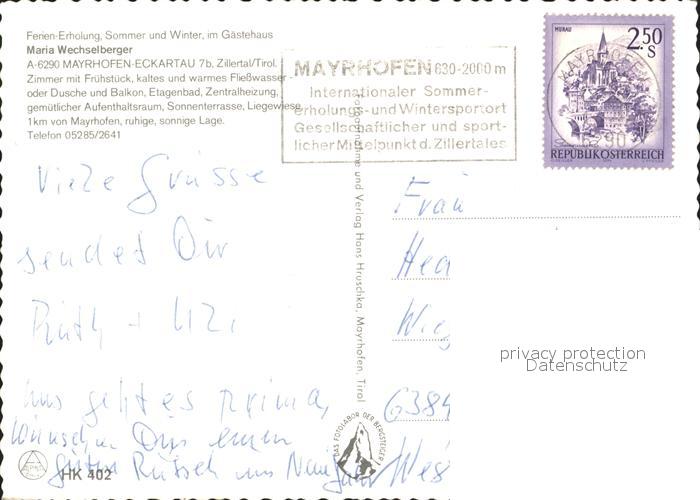 Ferien-Erholung, Sommer und Winter, im Gästehaus
Maria Wechselberger
A-6290 MAYRHOFEN-ECKARTAU 7b, Zillertal/Tirol.
Zimmer mit Frühstück, kaltes und warmes Fließwasser -
oder Dusche und Balkon, Etagenbad, Zentralheizung,
gemütlicher Aufenthaltsraum, Sonnenterrasse, Liegewiese,
1km von Mayrhofen, ruhige, sonnige Lage.
Telefon 05285/2641
MAYRHOFEN 630-2000 m
Internationaler Sommer-
erholungs- und Wintersportort
Gesellschaftlicher und sport-
licher Mittelpunkt d. Zillertales
MURAU
2.50
S
MAYRHOFEN
6290
REPUBLIK ÖSTERREICH
Viele Grüsse
sendet Dir
Ruth + Uzi
uns geht es prima,
Wünschen Dir einen
guten Rutsch ins
HK 402
und Verlag Hans Hruschka, Mayrhofen, Tirol
DAS FOTOLABOR DER BERGSTEIGER
Frau
6384
privacy protection
Datenschutz